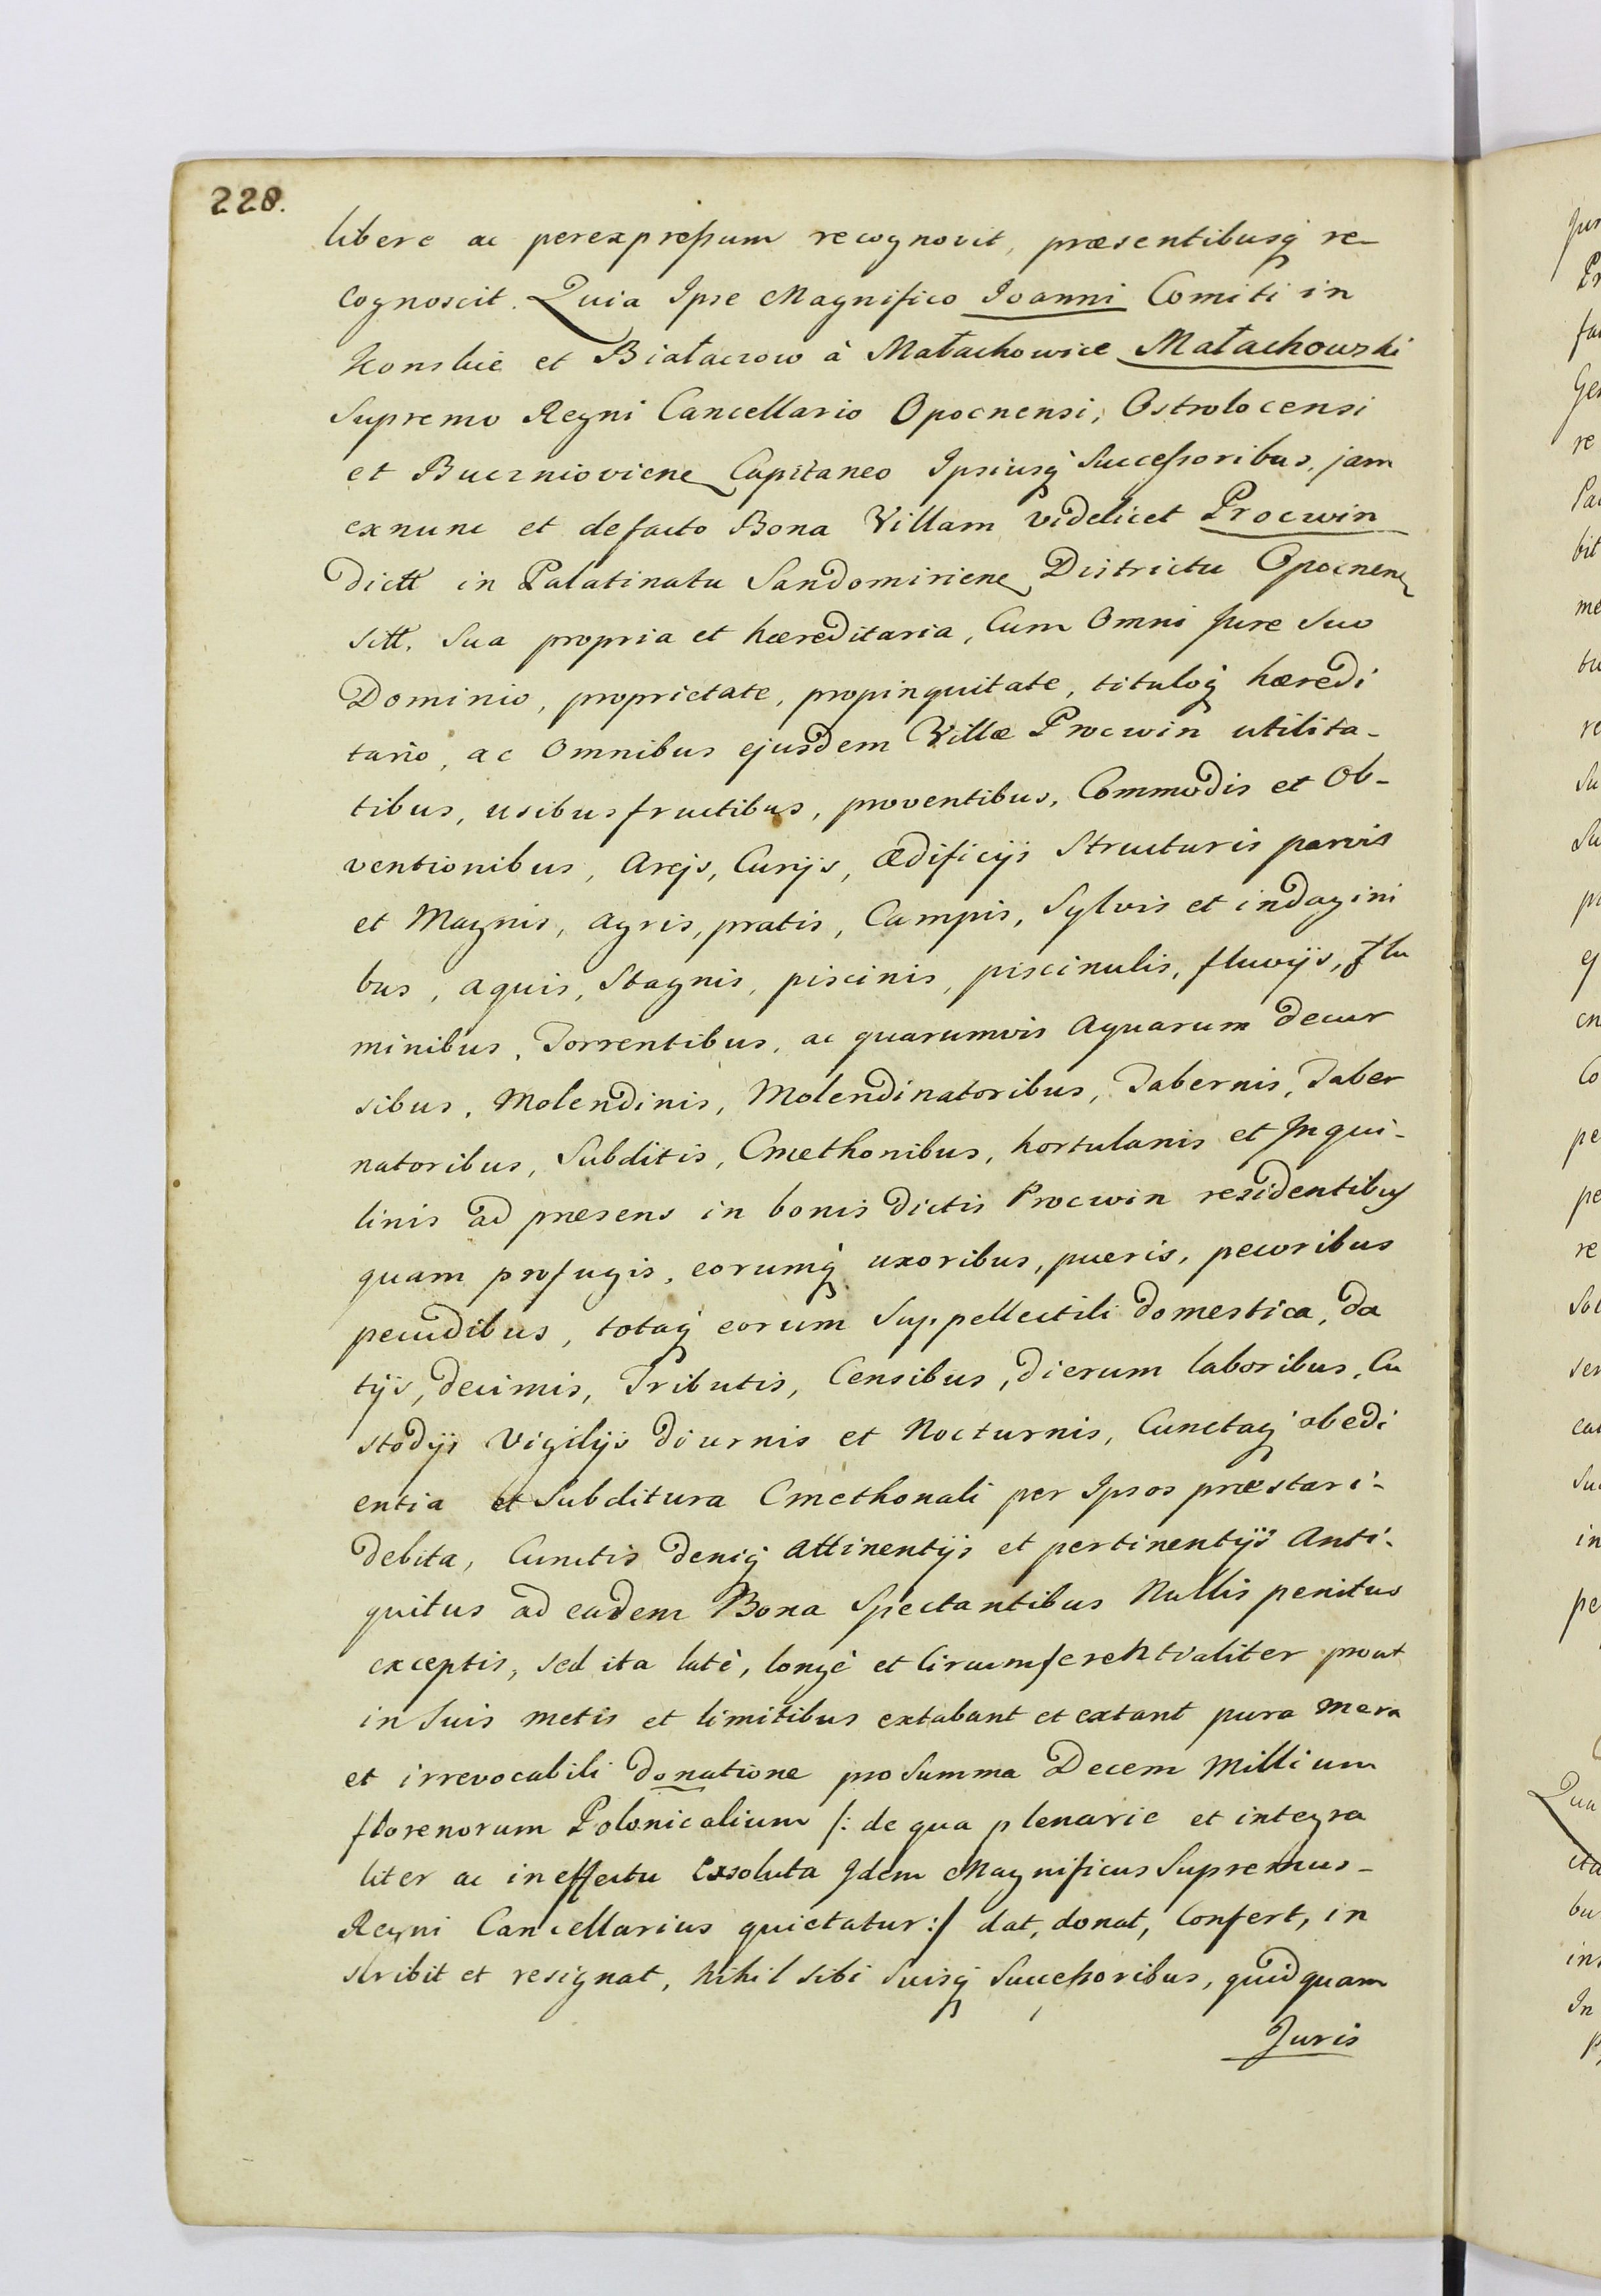 228.
libere ac perexpressum recognovit, præsentibusq re-
cognoscit. Quia Ipse Magnifico Ioanni Comiti in
Konskie et Białaczow à Małachowice Małachowski
Supremo Regni Cancellario Opocnensi, Ostrolocensi
et Bucznioviene Capitaneo Ipsiusq Successoribus, jam
exnunc et defacto Bona Villam videlicet Procwin
dictt in Palatinatu Sandomiriene Districtu Opocnene
sitt. Sua propria et hæreditaria, Cum Omni Jure Suo
Dominio, proprietate, propinquitate, tituloq hæredi
tario, ac Omnibus ejusdem Villæ Procwin utilita-
tibus, usibusfructibus, proventibus, Commodis et Ob-
ventionibus, Arejs, Curijs, ædificijs Structuris parvis
et Magnis, agris, pratis, Campis, Sylvis et indagini
bus, aquis, Stagnis, piscinis, piscinulis, fluvijs, flu
minibus, Torrentibus, ac quarumvis Aquarum decur
sibus, Molendinis, Molendinatoribus, Tabernis, Taber
natoribus, Subditis, Cmethonibus, hortulanis et Inqui-
linis ad præsens in bonis dictis Procwin residentibus
quam profugis, eorumq uxoribus, pueris, pecoribus
pecudibus, totaq eorum Suppellectili domestica, da
tijs, decimis, Tributis, Censibus, dierum laboribus, Cu
stodijs Vigilijs diurnis et Nocturnis, Cunctaq obedi
entia et Subditura Cmethonali per Ipsos præstari-
debita, Cunctis deniq Attinentijs et pertinentijs Anti-
quitus ad eadem Bona Spectantibus Nullis penitus
exceptis, sed ita latè, longè et Circumferentialiter prout
in Suis metis et limitibus extabant et extant pura mera
et irrevocabili donatione pro Summa Decem Millium
florenorum Polonicalium /: de qua plenarie et integra
liter ac in effectu Exsoluta Idem Magnificus Supremus-
Regni Cancellarius quietatur :/ dat, donat, Confert, in
scribit et resignat, Nihil sibi Suisq Successoribus, quidquam
Juris